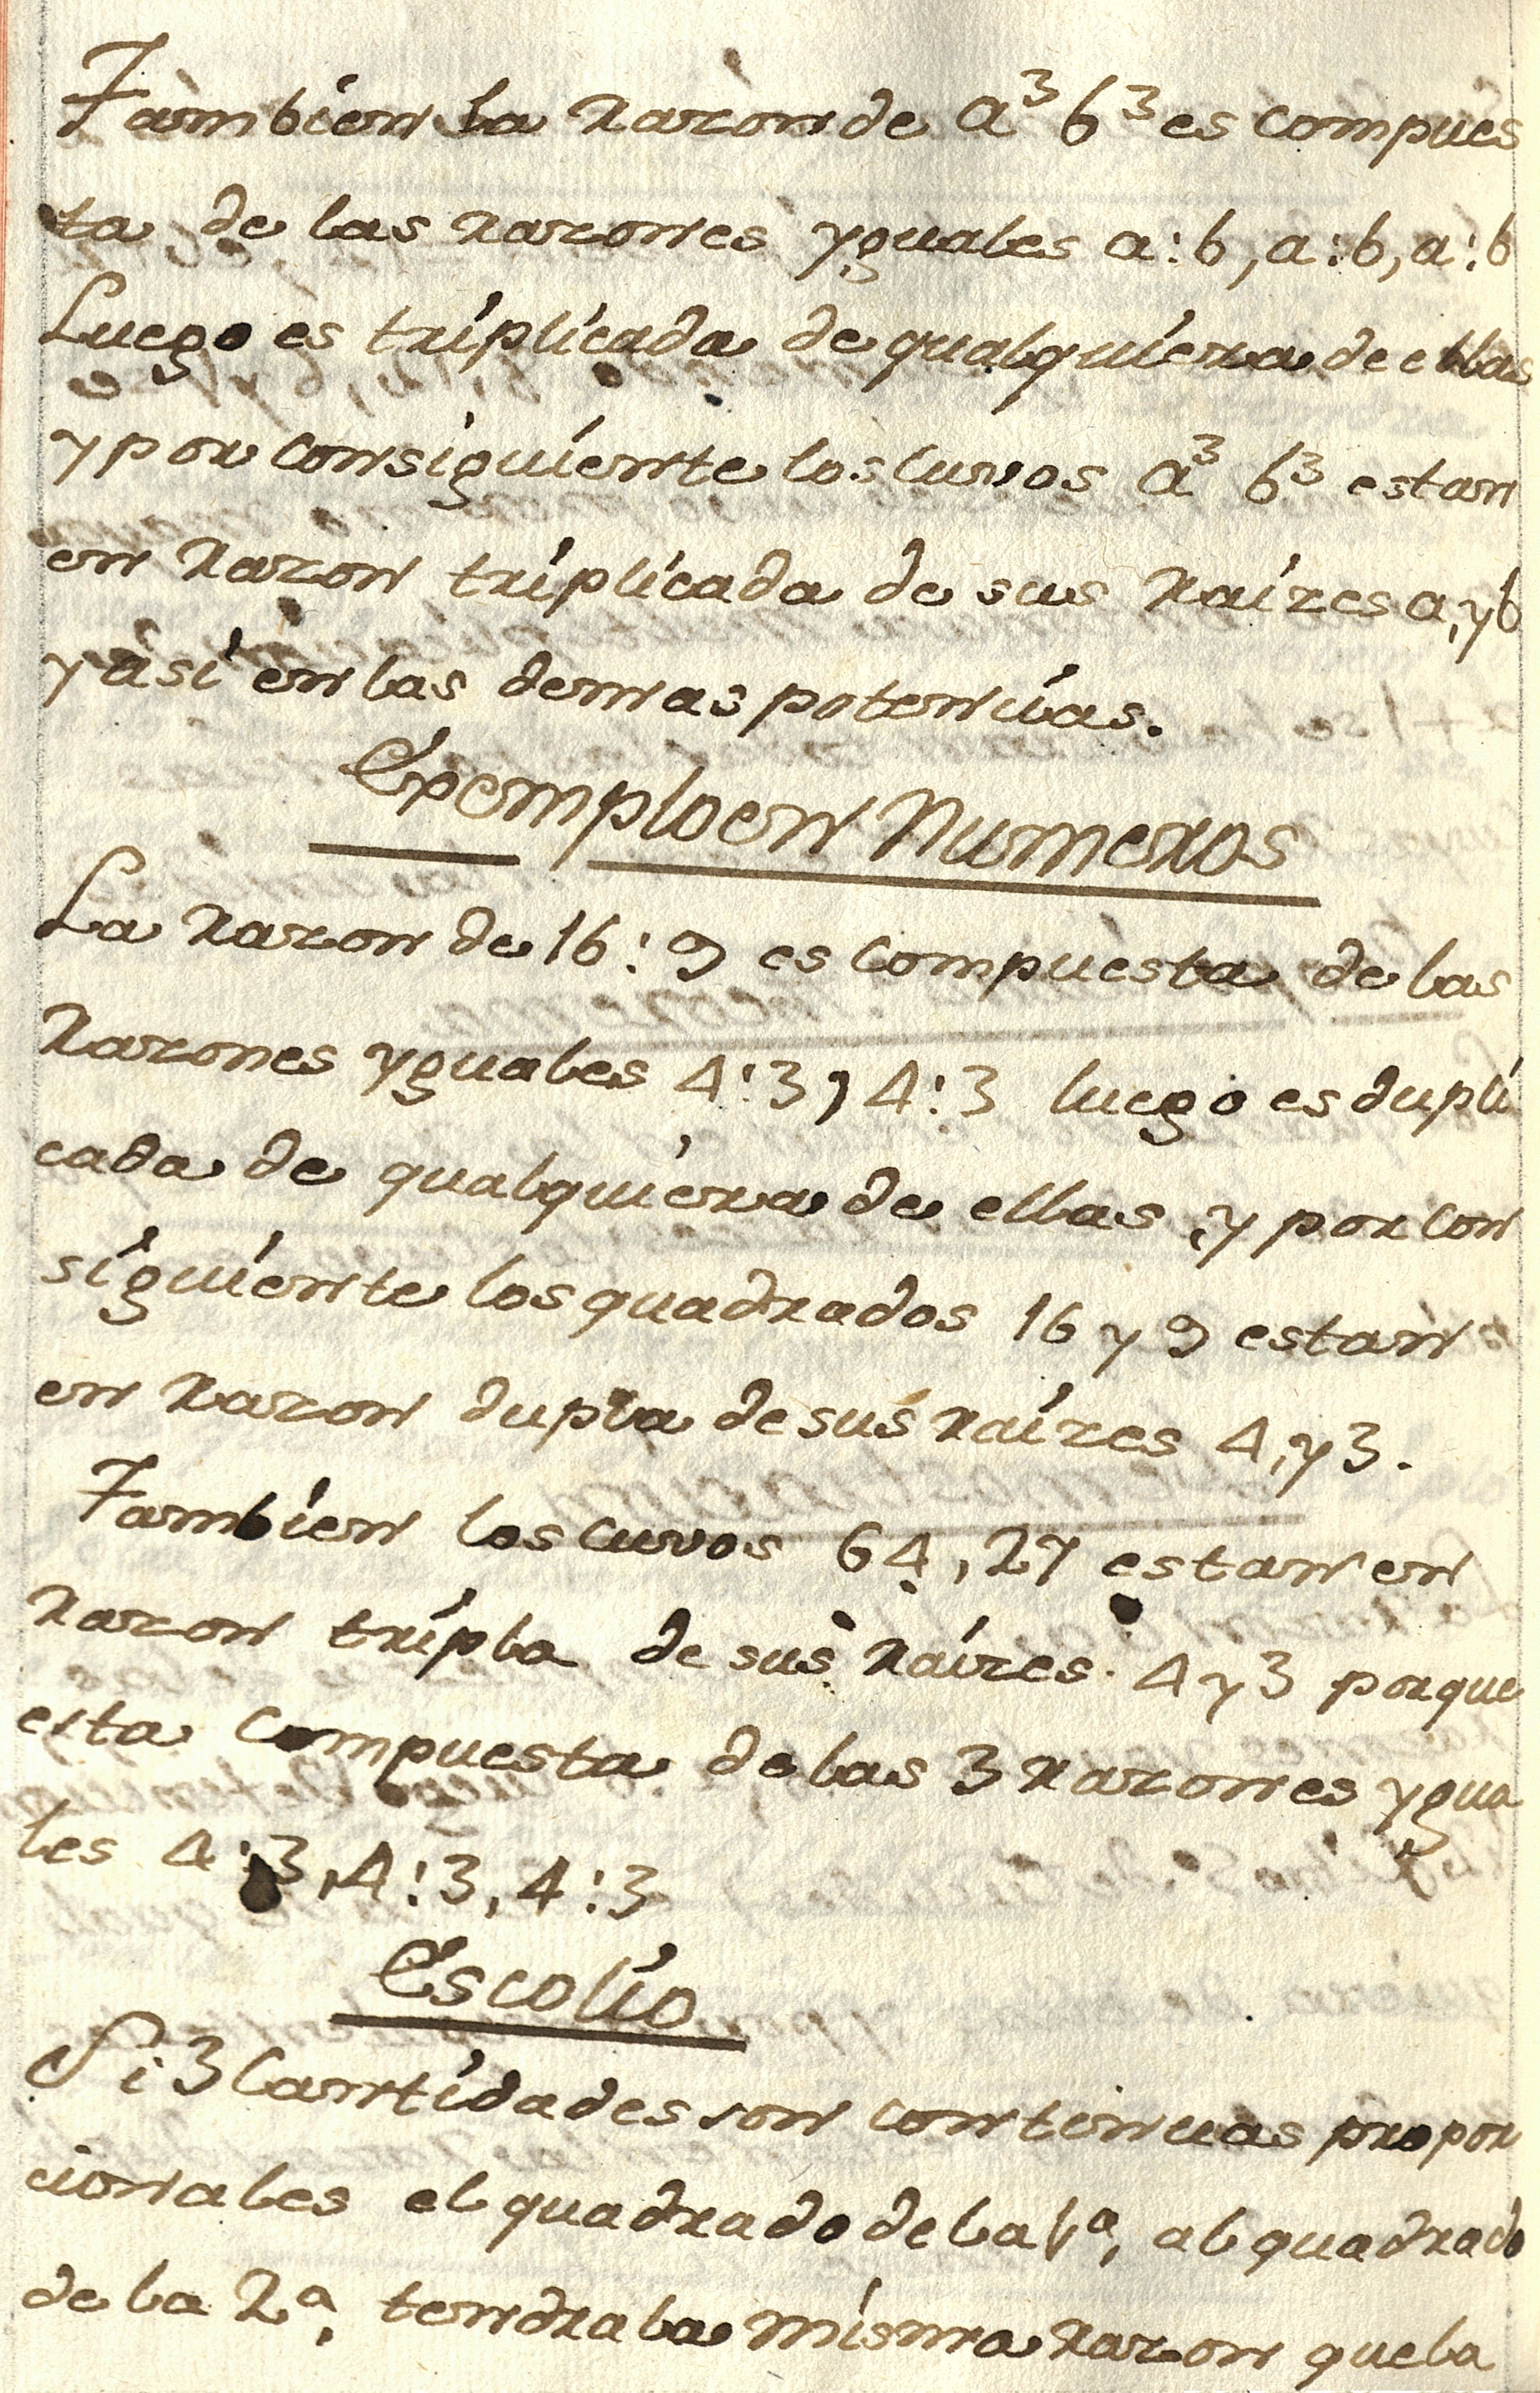 Tambien la razon de a³ b³ es compues
ta de las razones yguales a:b, a:b, a:b
Luego es triplicada de qualquiera de ellas
y por consiguiente los cuvos a³ b³ estan
en razon triplicada de sus raizes a, y b
y asi en las demas potencias.
Exemplo en Numeros
La razon de 16:9 es compuesta de las
razones yguales 4:3, 4:3 luego es dupli
cada de qualquiera de ellas, y por con
siguiente los quadrados 16 y 9 estan
en razon dupla de sus raizes 4, y 3.
Tambien los cuvos 64, 27 estan en
razon tripla de sus raizes 4 y 3 porque
esta compuesta de las 3 razones ygua
les 4:3, 4:3, 4:3
Escolio
Si 3 Cantidades son continuas propor
cionales el quadrado de la 1ª, al quadrado
de la 2ª, tendra la misma razon que la